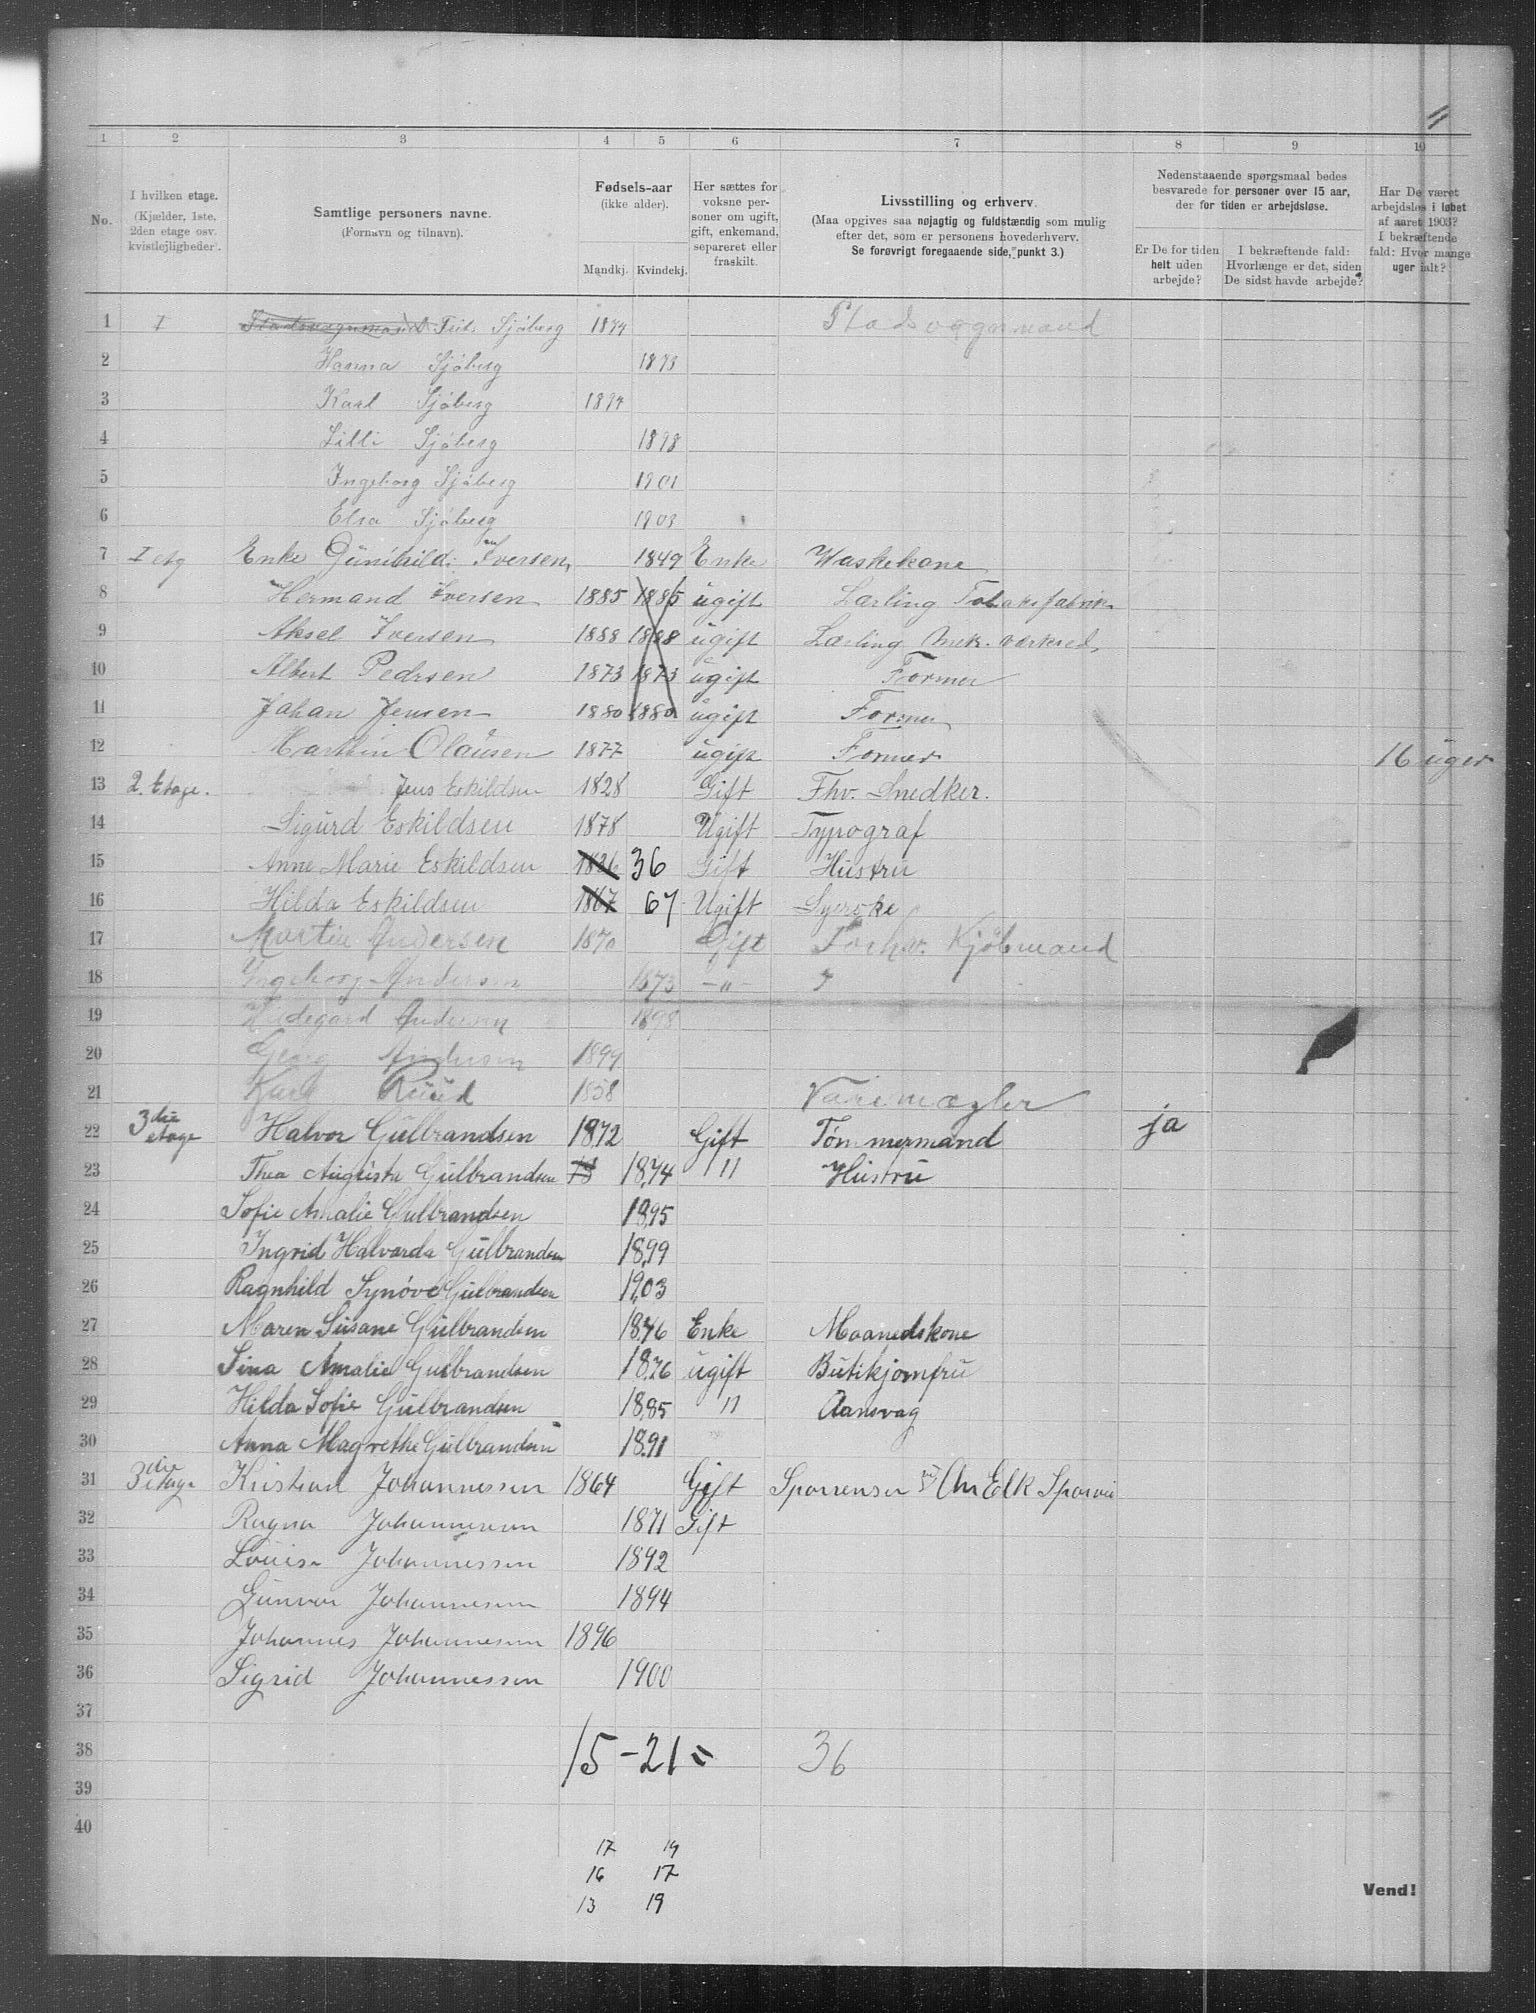 1 2 3 4 5 6 7 8 9 10
No.
I hvilken etage.
(Kjælder, 1ste,
2den etage osv.
kvistlejligheder.
Samtlige personers navne.
(Fornavn og tilnavn).
Fødsels-aar
(ikke alder).
Mandkj. Kvindekj.
Her sættes for
voksne per-
soner om ugift,
gift, enkemand,
separeret eller
fraskilt.
Livsstilling og erhverv.
(Maa opgives saa nøjagtig og fuldstændig som mulig
efter det, som er personens hovederhverv.
Se forøvrigt foregaaende side, punkt 3.)
Nedenstaaende spørgsmaal bedes
besvarede for personer over 15 aar,
der for tiden er arbejdsløse.
Er De for tiden
helt uden
arbejde?
I bekræftende fald:
Hvorlænge er det, siden
De sidst havde arbejde?
Har De været
arbejdsløs i løbet
af aaret 1903?
I bekræftende
fald: Hvor mange
uger ialt?
1 I Sjöberg Stadsvognmand
2 Hanna Sjöberg 1873
3 Karl Sjöberg 1894
4 Lilli Sjöberg 1898
5 Ingeborg Sjöberg 1901
6 Elsa Sjöberg 1903
7 I etg Enke Gunihild Iversen 1849 Enke Waskekone
8 Hermand Iversen 1885 1885 ugift Lærling Tobaksfabrik
9 Aksel Iversen 1888 1888 ugift Lærling Mek. værksted
10 Albert Pedrsen 1873 1873 ugift Former
11 Johan Jensen 1880 1880 ugift Former
12 Martin Olausen 1877 ugift Former 16 uger
13 2. Etage. Jens Eskildsen 1828 Gift Fhv. Snedker.
14 Sigurd Eskildsen 1878 Ugift Typograf
15 Anne Marie Eskildsen 1836 36 Gift Hustru
16 Hilda Eskildsen 1867 67 Ugift Syerske
17 Martin Andersen 1870 Gift Forhv. Kjöbmand
18 Ingeborg Andersen 1873 -"-
19 Andersen 1898
20 Georg Andersen 1899
21 Karl Ruud 1858 Varemægler
22 3die etage Halvor Gulbrandsen 1872 Gift Tömmermand ja
23 Thea Augusta Gulbrandsen 73 1874 " Hustru
24 Sofie Amalie Gulbrandsen 1895
25 Ingrid Halvarda Gulbrandsen 1899
26 Ragnhild Synöve Gulbrandsen 1903
27 Maren Susane Gulbrandsen 1846 Enke Maanedskone
28 Sina Amalie Gulbrandsen 1876 ugift Butikjomfru
29 Hilda Sofie Gulbrandsen 1885 "
30 Anna Magrethe Gulbrandsen 1891
31 3die etage Kristian Johannessen 1864 Gift Sporrenser
32 Ragna Johannessen 1871 Gift
33 Louise Johannessen 1892
34 Gunvor Johannessen 1894
35 Johannes Johannessen 1896
36 Sigrid Johannessen 1900
37
38 15 - 21 = 36
39
40
17 19
16 17
13 19
Vend!